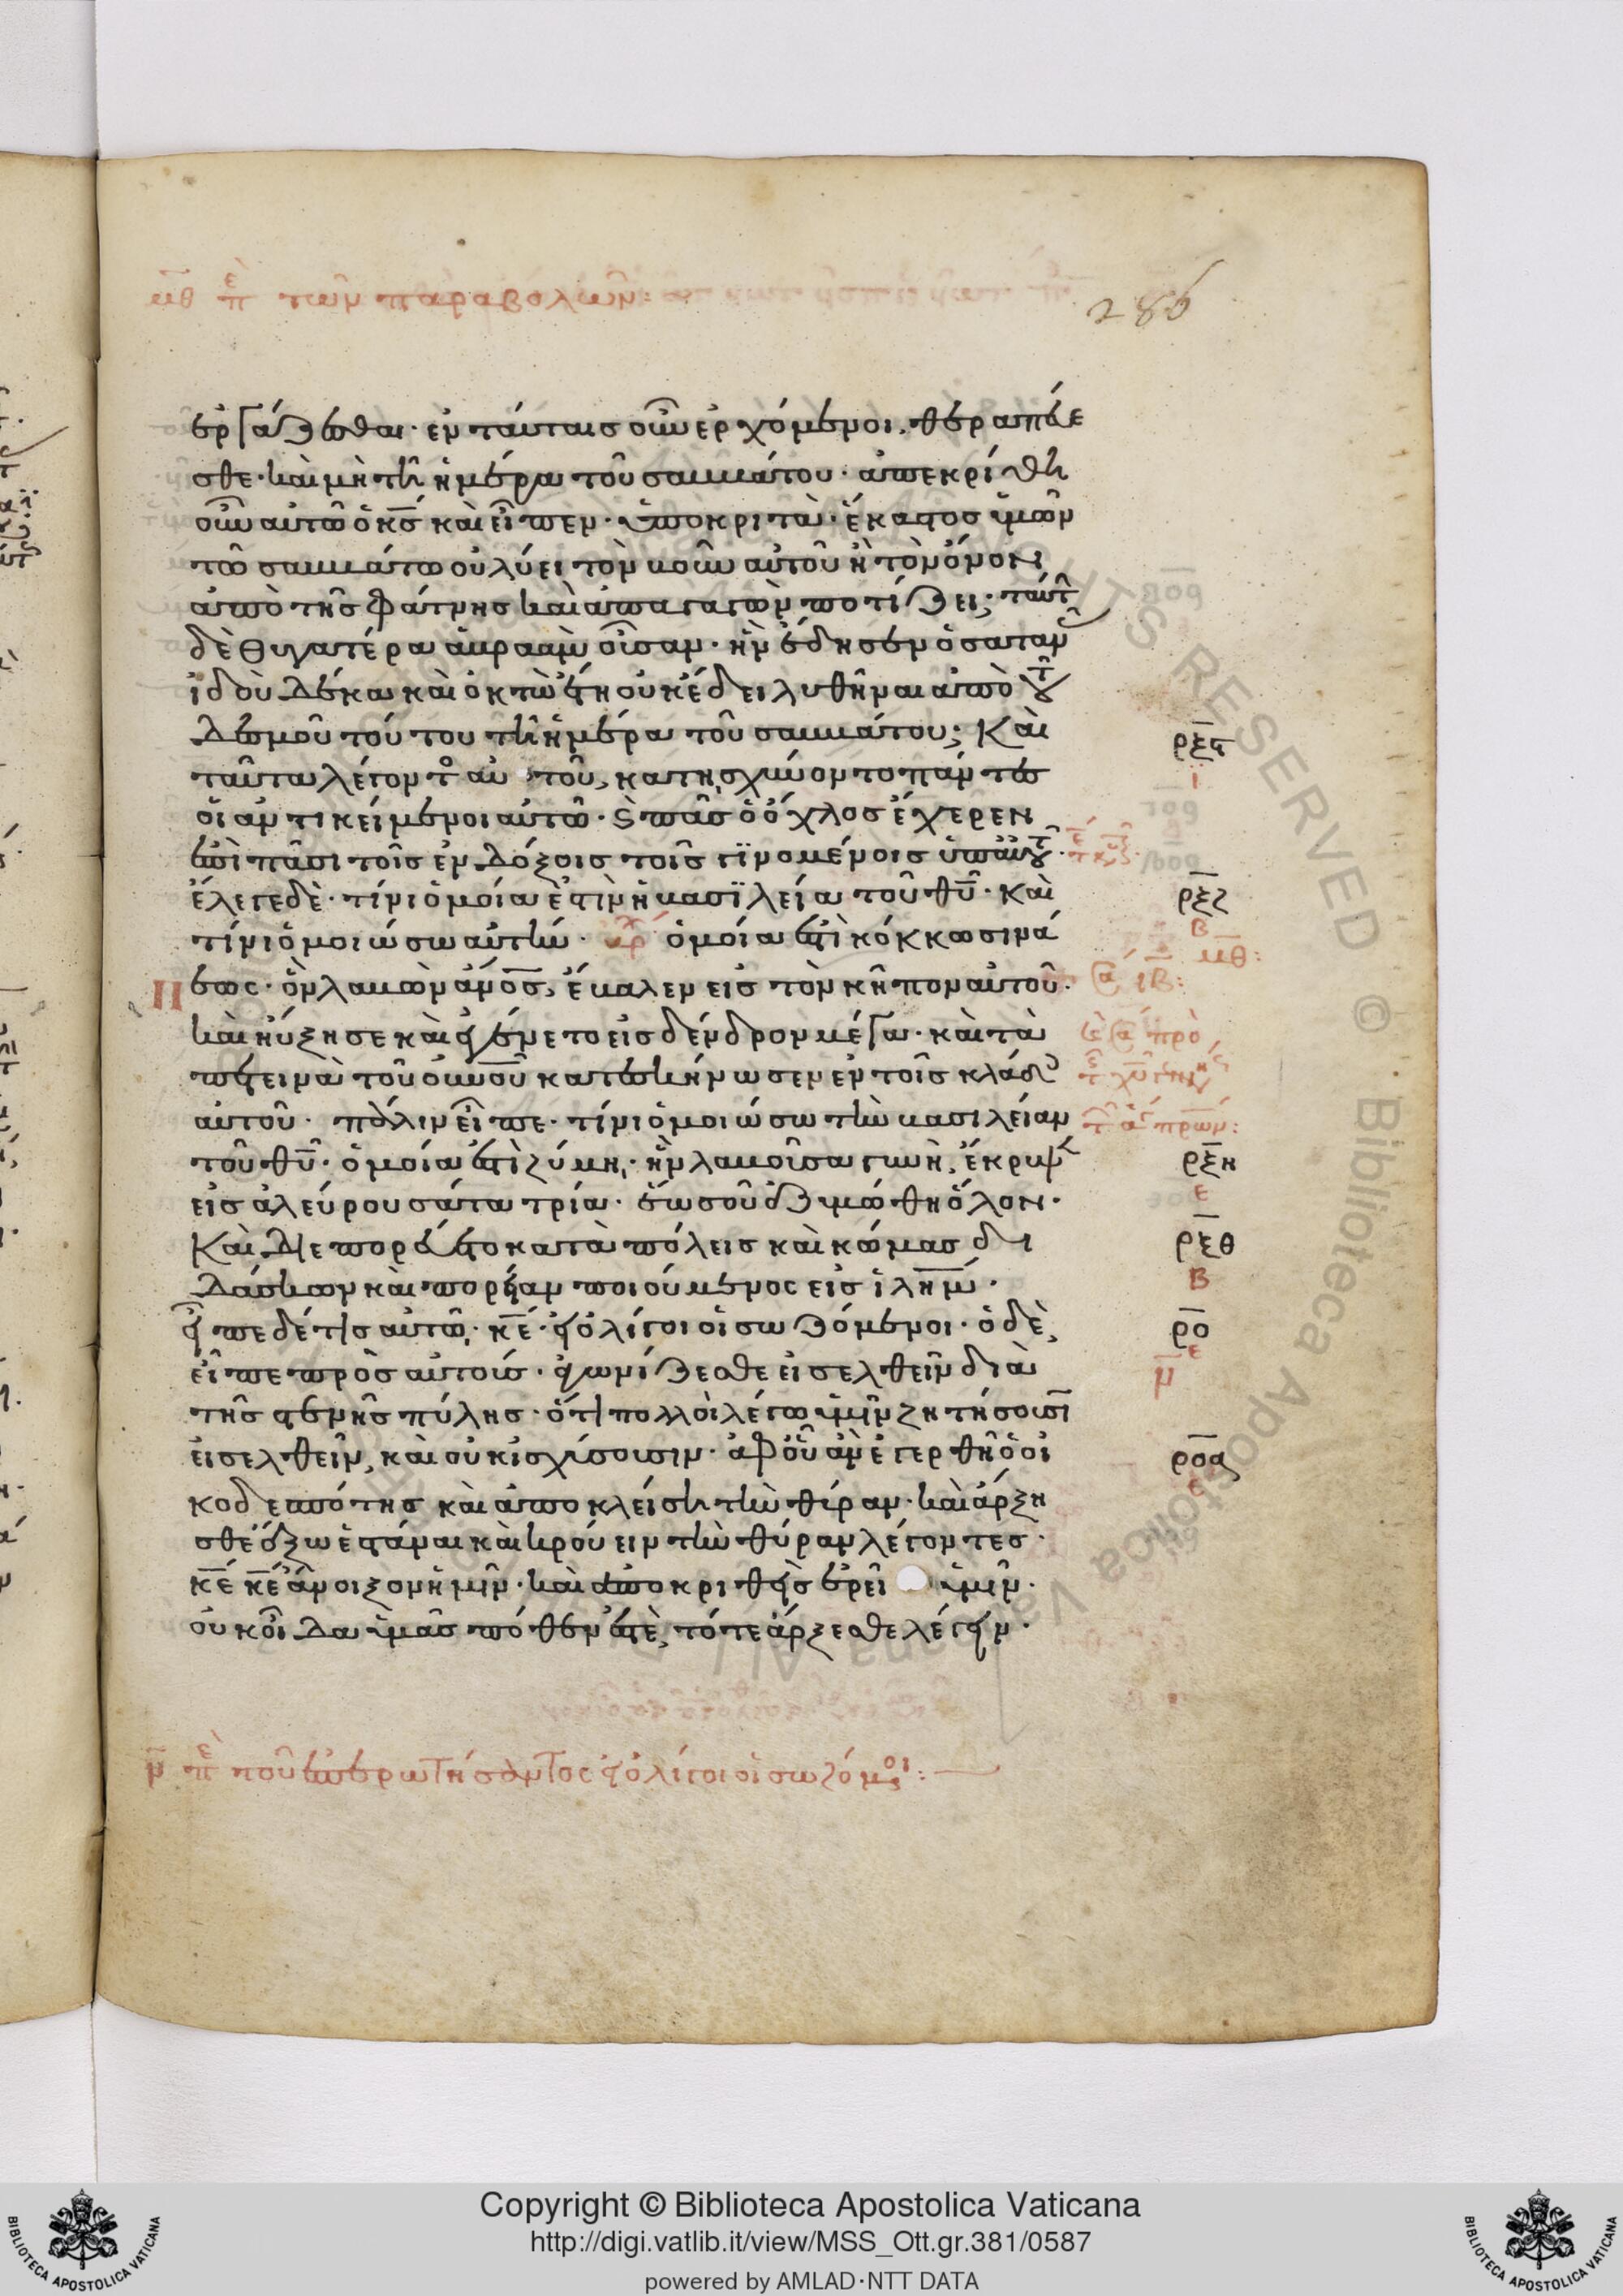 μθ πε τῶν παραβολῶν:
286
ἐργάζεσθαι· ἐν ταύταις οὖν ἐρχόμενοι, θεραπεύε
σθε· καὶ μὴ τῆ ἡμέρα τοῦ σαββάτου· ἀπεκρίθη
οὖν αὐτῶ ὁ κς καὶ εἶπεν· ὑποκριταὶ· ἕκαστος ὑμῶν
τῶ σαββάτω οὐ λύει τὸν βοῦν αὐτοῦ ἢ τὸν ὄνον
ἀπὸ τῆς φάτνης καὶ ἀπαγαγὼν ποτίζει; ταύτ
δὲ θυγατέρα ἀβραὰμ οὖσαν· ἣν ἔδησεν ὁ σαταν
ἰδοὺ δέκα καὶ ὀκτὼ ἔτη οὐκ ἔδει λυθῆναι ἀπὸ τοῦ
δεσμοῦ τούτου τῆ ἡμέρα τοῦ σαββάτου; Καὶ
ταῦτα λέγοντο αὐτοῦ, κατησχύνοντο πάντες
οἱ ἀντικείμενοι αὐτῶ· ϗ πᾶς ὁ ὄχλος ἔχερεν
ἐπὶ πᾶσι τοῖς ἐνδόξοις τοῖς γϊνομένοις ὑπ αὐτοῦ·
ἔλεγε δὲ· τίνι ὁμοία ἐστὶν ἡ βασϊλεία τοῦ θυ· καὶ
τίνι ὁμοιώσω αὐτήν· ὁμοία ἐστὶ κόκκω σινά
πεως· ὃν λαβὼν ἄνος, ἔβαλεν εἰς τὸν κῆπον αὐτοῦ·
καὶ ηὔξησε καὶ ἐγένετο εἰς δένδρον μέγα· καὶ τὰ
πετεινὰ τοῦ οὐνοῦ κατεσκήνωσεν ἐν τοῖς κλάδοις
αὐτοῦ· πάλιν εἶπε· τίνι ὁμοιώσω τὴν βασιλείαν
τοῦ θυ· ὁμοία ἐστὶ ζύμη· ἣν λαβοῦσα γυνὴ, ἔκρυψε
εἰς ἀλεύρου σάτα τρία· ἕως οὗ ἐζυμώθη ὅλον·
Καὶ διεπορεύετο κατὰ πόλεις καὶ κώμας δι
δάσκων καὶ πορείαν ποιούμενος εἰς ἱλημ·
εἶπε δέ τις αὐτῶ· κε· εἰ ὀλίγοι οἱ σωζόμενοι· ὁ δὲ
εἶπε πρὸς αὐτούς· ἀγωνίζεσθε εἰσελθεῖν διὰ
τῆς στενῆς πύλης· ὅτι πολλοὶ λέγω ὑμῖν ζητήσουσι
εἰσελθεῖν, καὶ οὐκ ἰσχύσουσιν· ἀφ οὗ ἂν ἐγερθῆ ὁ οἰ
κοδεσπότης καὶ ἀποκλείση τὴν θύραν· καὶ ἄρξη
σθε ἔξω ἑστάναι καὶ κρούειν τὴν θύραν λέγοντες·
κε κε ἄνοιξον ἡμῖν· καὶ ἀποκριθεὶς ἐρεῖ ὑμῖν·
οὐκ οἶδα ὑμᾶς πόθεν ἐστὲ, τότε ἄρξεσθε λέγειν·
ρξϛ
ι
ρξζ
β
μθ:
ιβ:
ρξη
ε
ρξθ
β
ρο
ε
μ
ροα
ε
ν πε τοῦ ἐπερωτήσαντος εἰ ὀλίγοι οἱ σωζόμενοι:
Copyright © Biblioteca Apostolica Vaticana
http://digi.vatlib.it/view/MSS_Ott.gr.381/0587
powered by AMLAD·NTT DATA
BIBLIOTECA APOSTOLICA VATICANA
BIBLIOTECA APOSTOLICA VATICANA